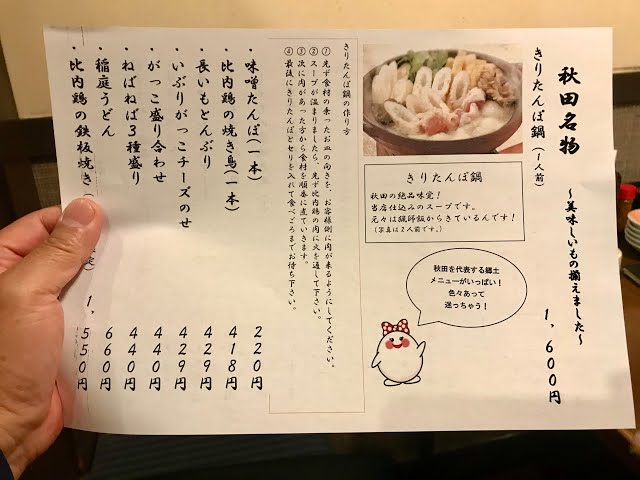 秋田名物
～美味しいもの揃えました～
きりたんぽ鍋(1人前)
1,600円
きりたんぽ鍋
秋田の絶品味覚！
当店仕込みのスープです。
元々は猟師飯からきているんです！
(写真は2人前です。)
秋田を代表する郷土
メニューがいっぱい！
色々あって
迷っちゃう！
きりたんぽ鍋の作り方
①先ず食材の乗ったお皿の向きを、お客様側に肉が来るようにしてください。
②スープが温まりましたら、先ず比内鶏の肉に火を通して下さい。
③次に肉があった方から食材を順番に煮ていきます。
④最後にきりたんぽとセリを入れて食べごろまでお待ち下さい。
・味噌たんぽ(一本) 220円
・比内鶏の焼き鳥(一本) 418円
・長いもとんぶり 429円
・いぶりがっこチーズのせ 429円
・がっこ盛り合わせ 440円
・ねばねば3種盛り 440円
・稲庭うどん 660円
・比内鶏の鉄板焼き( 定) 1,550円